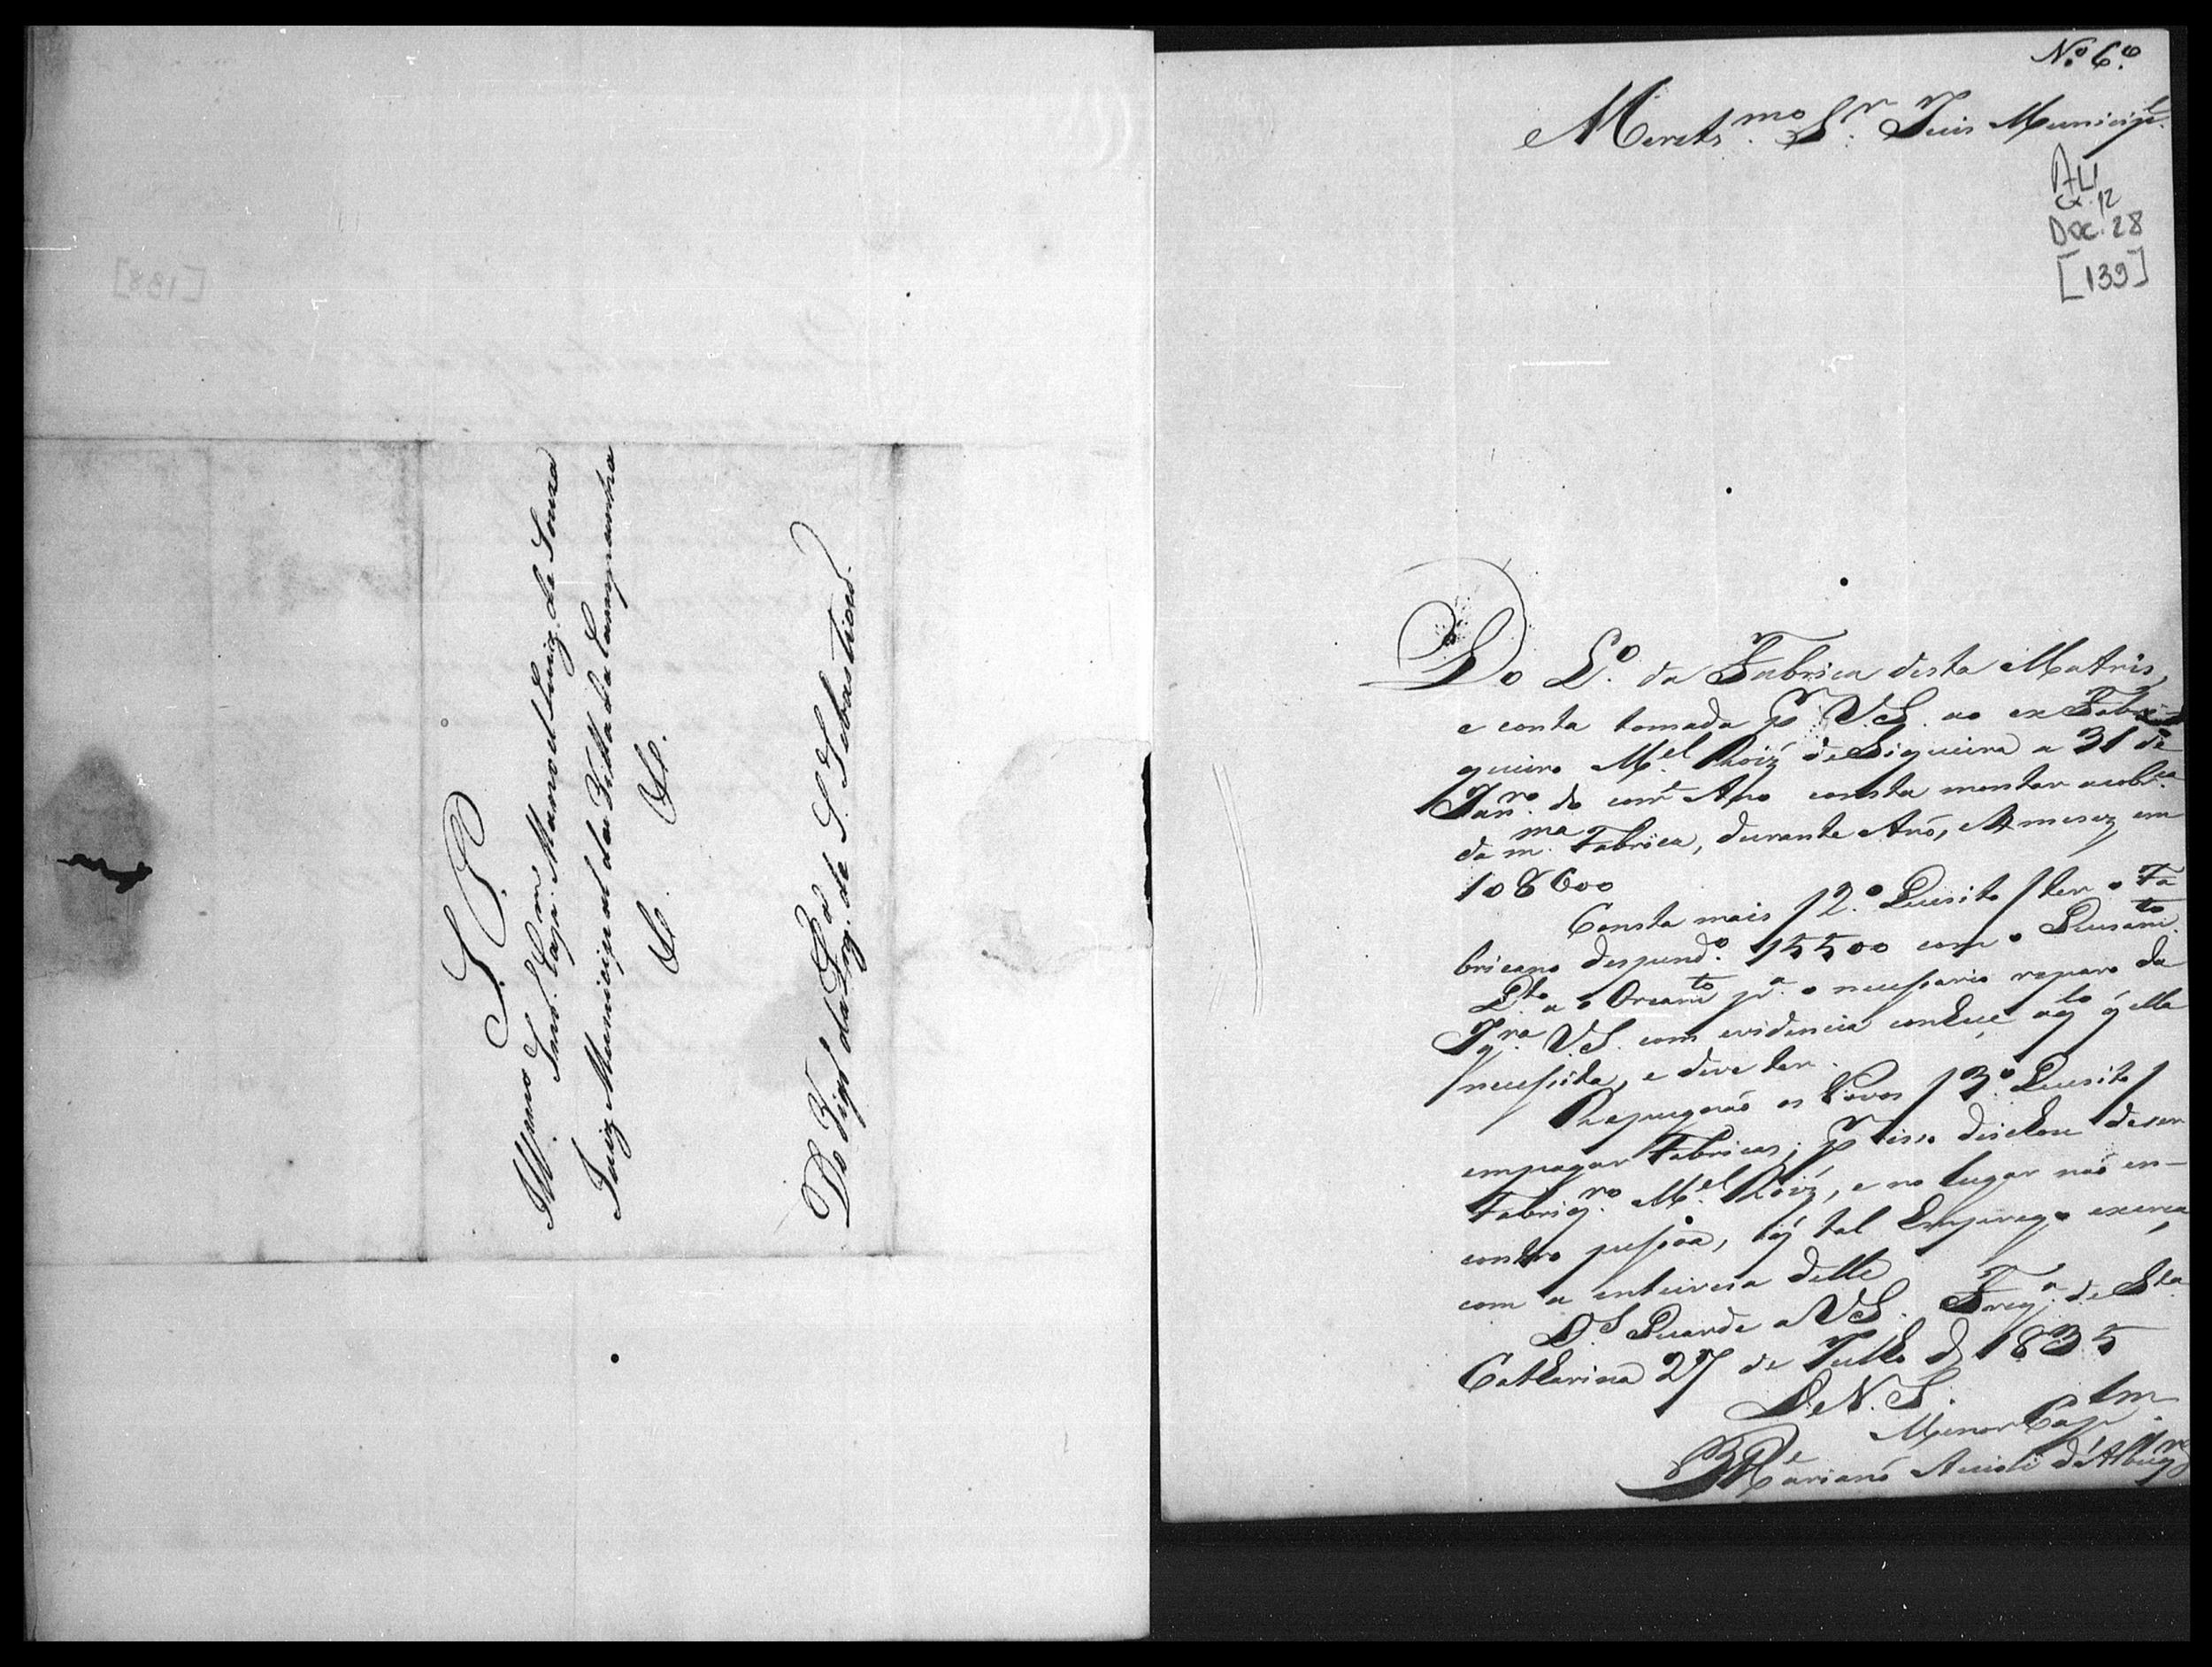 S. P.
Illmo Snr. Capm. Manoel Luiz de Souza
Juiz Municipal da Villa da Campanha
&c. &c.
Do Vigro da Frg. de S. Sebastião.
[138]
No. 6.o
Meretsmo. Sr. Juis Municipl.
AH
Cx. 12
Doc. 28
[139]
Do L.o da Fabrica desta Matris,
e conta tomada pr V.S. ao ex Fabri-
queiro Mel Roiz de Siqueira a 31 de
Janro. do corrte Ano consta montar a cobrca
da mma. Fabrica, durante Anô, e mesez em
108600
Consta mais / 2.o Quesito / ter o Fa
bricano despend.o 15500 com o Guisamto.
Qto. a o Orcamto pa. o necessario reparo da
Igra. V.S. com evidencia conhece aqto q ella
necessita, e deve ter.
Repugnão os Povos / 3.o Quesito /
em pagar Fabricas; pr isso deichou de ser
Fabriqro. Mel Roiz, e no lugar não en-
contro pessoa, q tal Emprego exerca,
com a inteireza delle
Ds Guarde a VS. Frega. de Sta.
Catharina 27 de Julho de 1835
De V. S.
Menor Capelm
Pe Marianô Acioli d'Albuqre